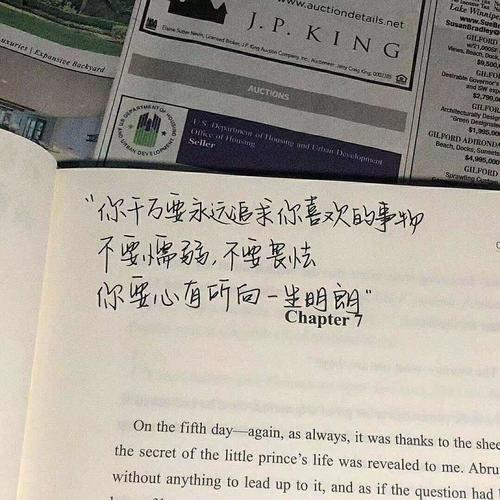 www.auctiondetails.net
J.P. KING
Elaine Sutter Nevin, Licensed Broker; J.P. King Auction Company, Inc.; Auctioneer: Jerry Craig King, 0002385
uxuries | Expansive Backyard
AUCTIONS
U.S. DEPARTMENT OF HOUSING AND URBAN DEVELOPMENT
U.S. Department of Housing and Urban Development
Office of Housing
Seller
Lake Winnip
www.SueBr
SusanBradley@
GILFORD
w/21,000SF
Views, Beach, Dock,
$9,500,
GILFORD
Desirable Governor's
and SW exp
$2,798,00
GILFORD
Architecturally Design
"Green Designe
$1,995,00
GILFORD ADIRONDA
Beach, Docks, Sunsets
$4,995,000
GILFORD
Sprawling Custom
"你千万要永远追求你喜欢的事物
不要懦弱,不要畏怯
你要心有所向一生明朗"
Chapter 7
On the fifth day—again, as always, it was thanks to the shee
the secret of the little prince's life was revealed to me. Abru
without anything to lead up to it, and as if the question had